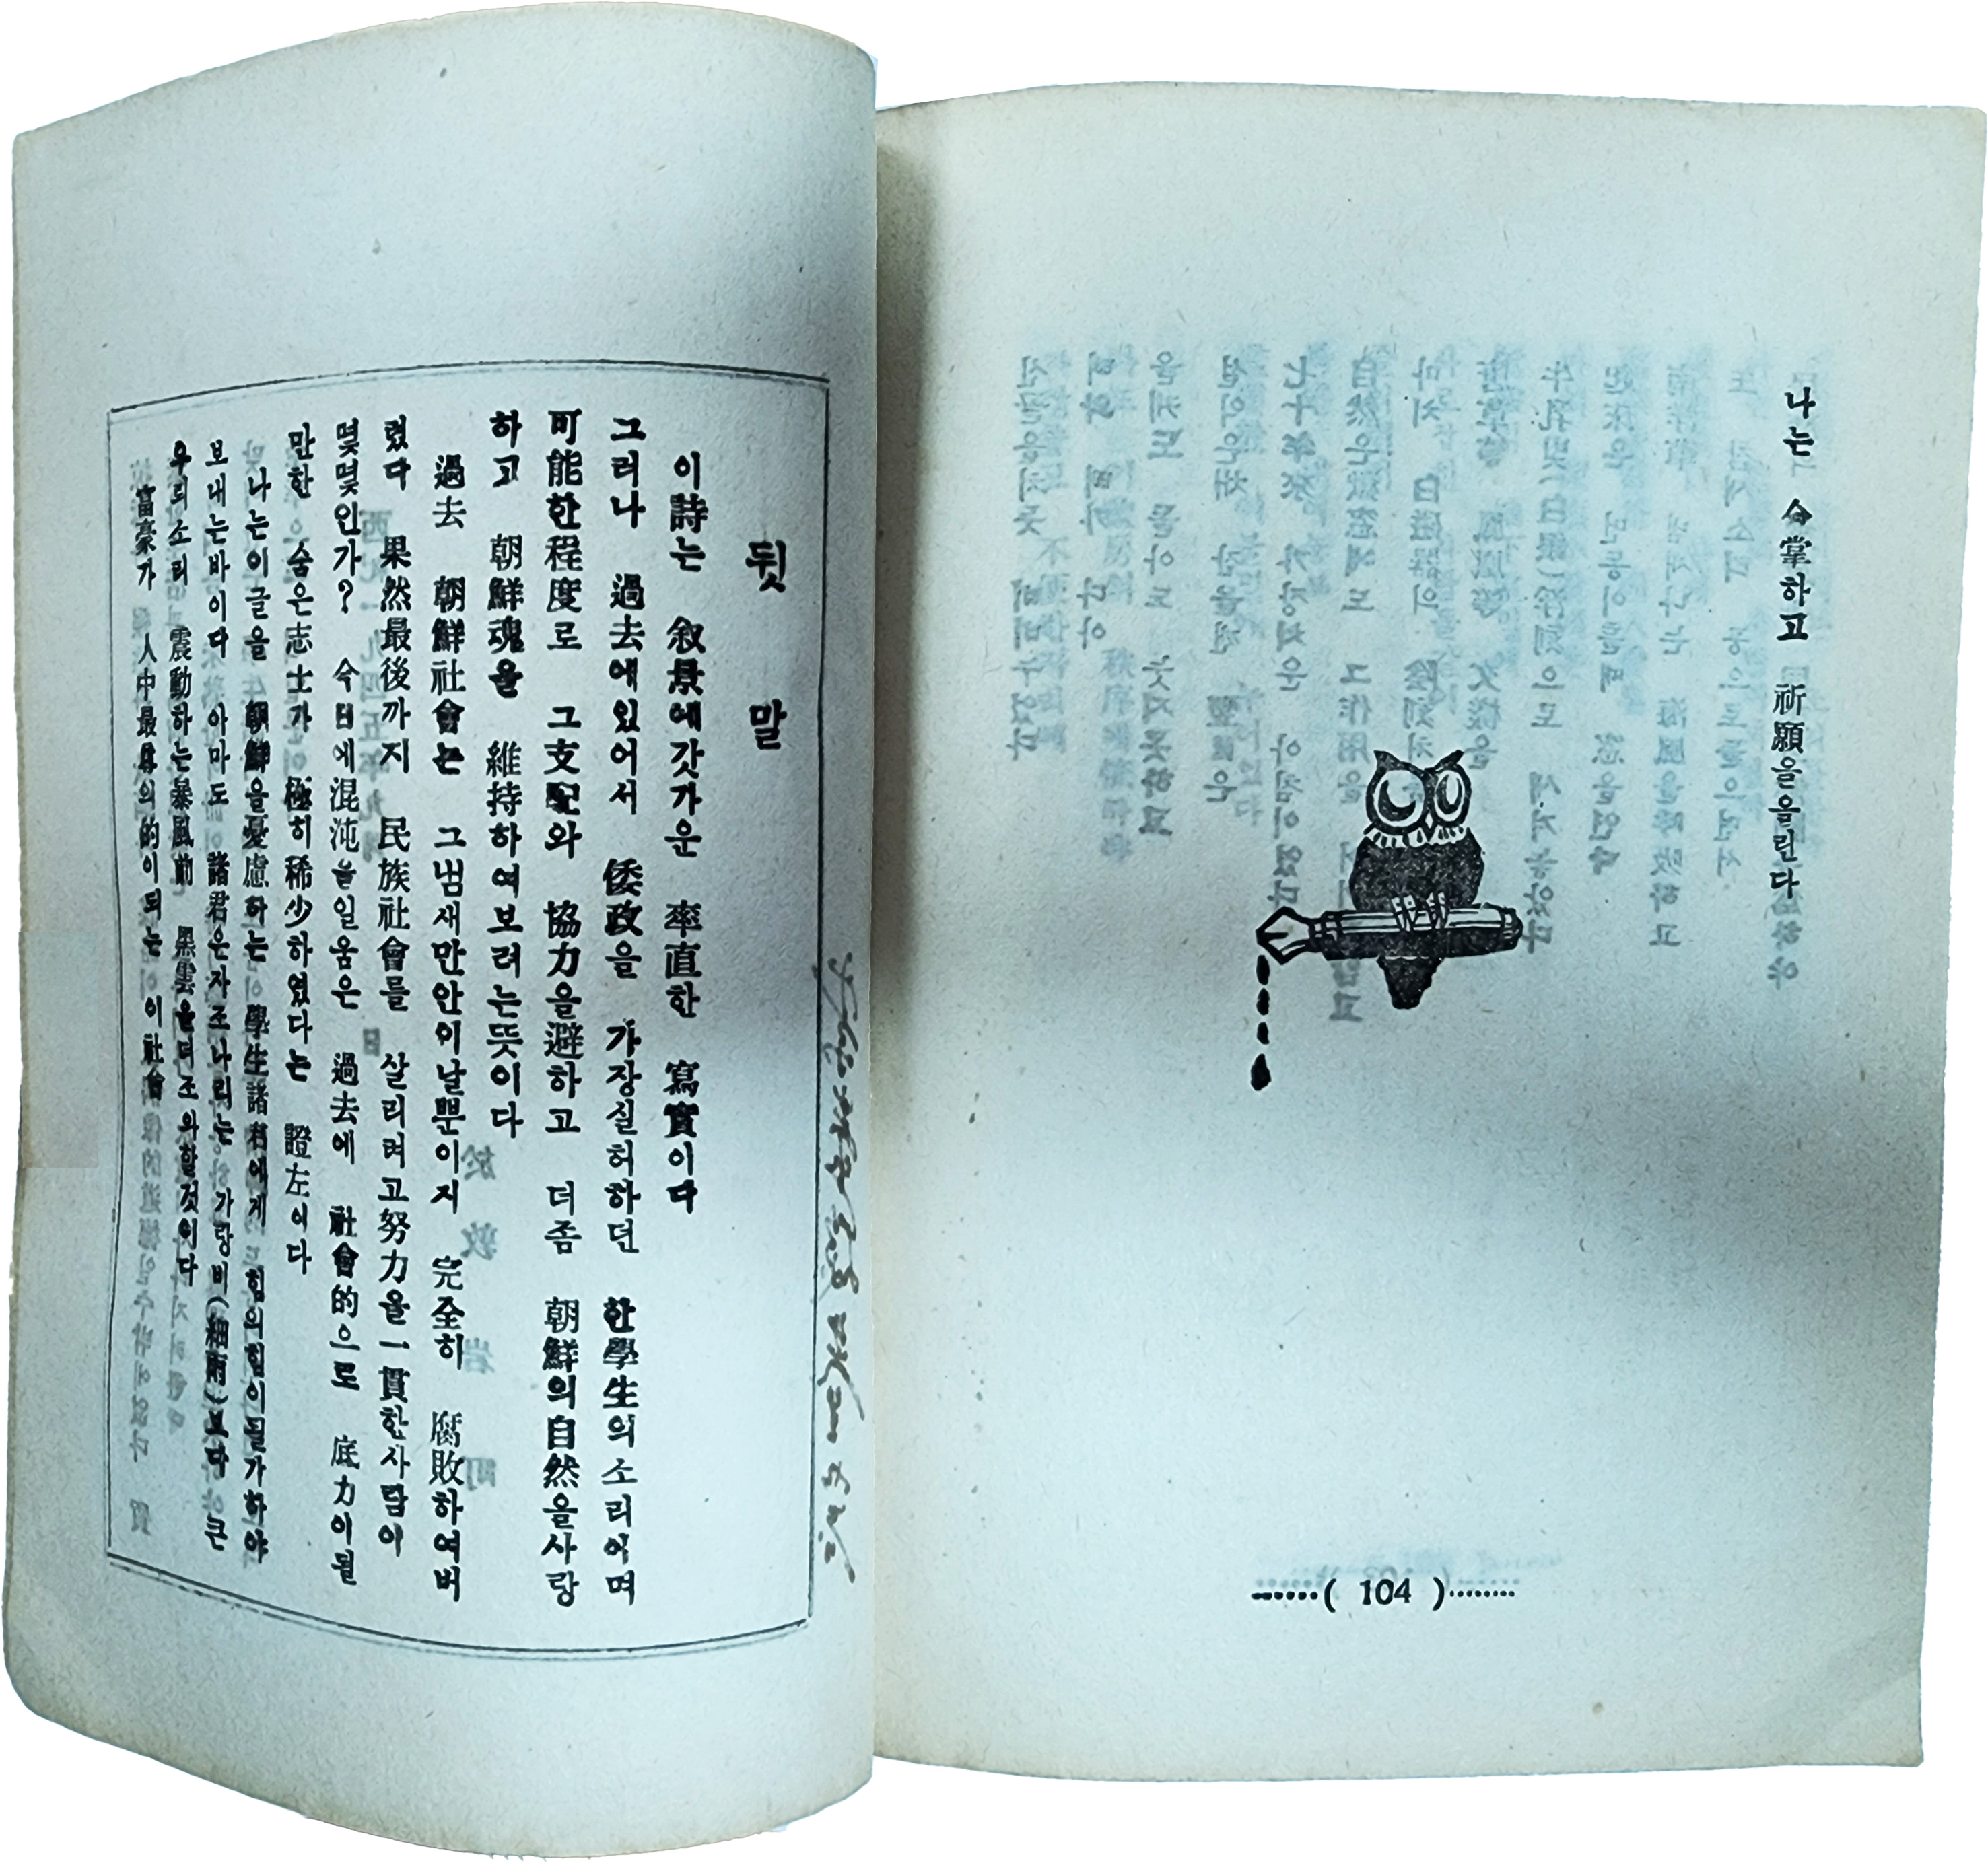 나는 合掌하고 祈願을올린다
……( 104 )………
뒷말
이詩는 敘景에갓가운 率直한 寫實이다
그러나 過去에있어서 倭政을 가장실허하던 한學生의소리이며
可能한程度로 그支配와 協力을避하고 더좀 朝鮮의自然을사랑
하고 朝鮮魂을 維持하여보려는뜻이다
過去 朝鮮社會는 그냄새만안이날뿐이지 完全히 腐敗하여버
렸다 果然最後까지 民族社會를 살리려고努力을一貫한사람이
몇몇인가? 今日에混沌을일움은 過去에 社會的으로 底力이될
만한 숨은志士가 極히稀少하였다는 證左이다
나는이글을 朝鮮을憂慮하는 學生諸君에게 힘의힘이될가하야
보내는바이다 아마도 諸君은자조나리는 가랑비(細雨)보다 큰
우뢰소리 震動하는暴風前 黑雲을더조와할것이다
富豪가 人中最尊의的이되는 이社會